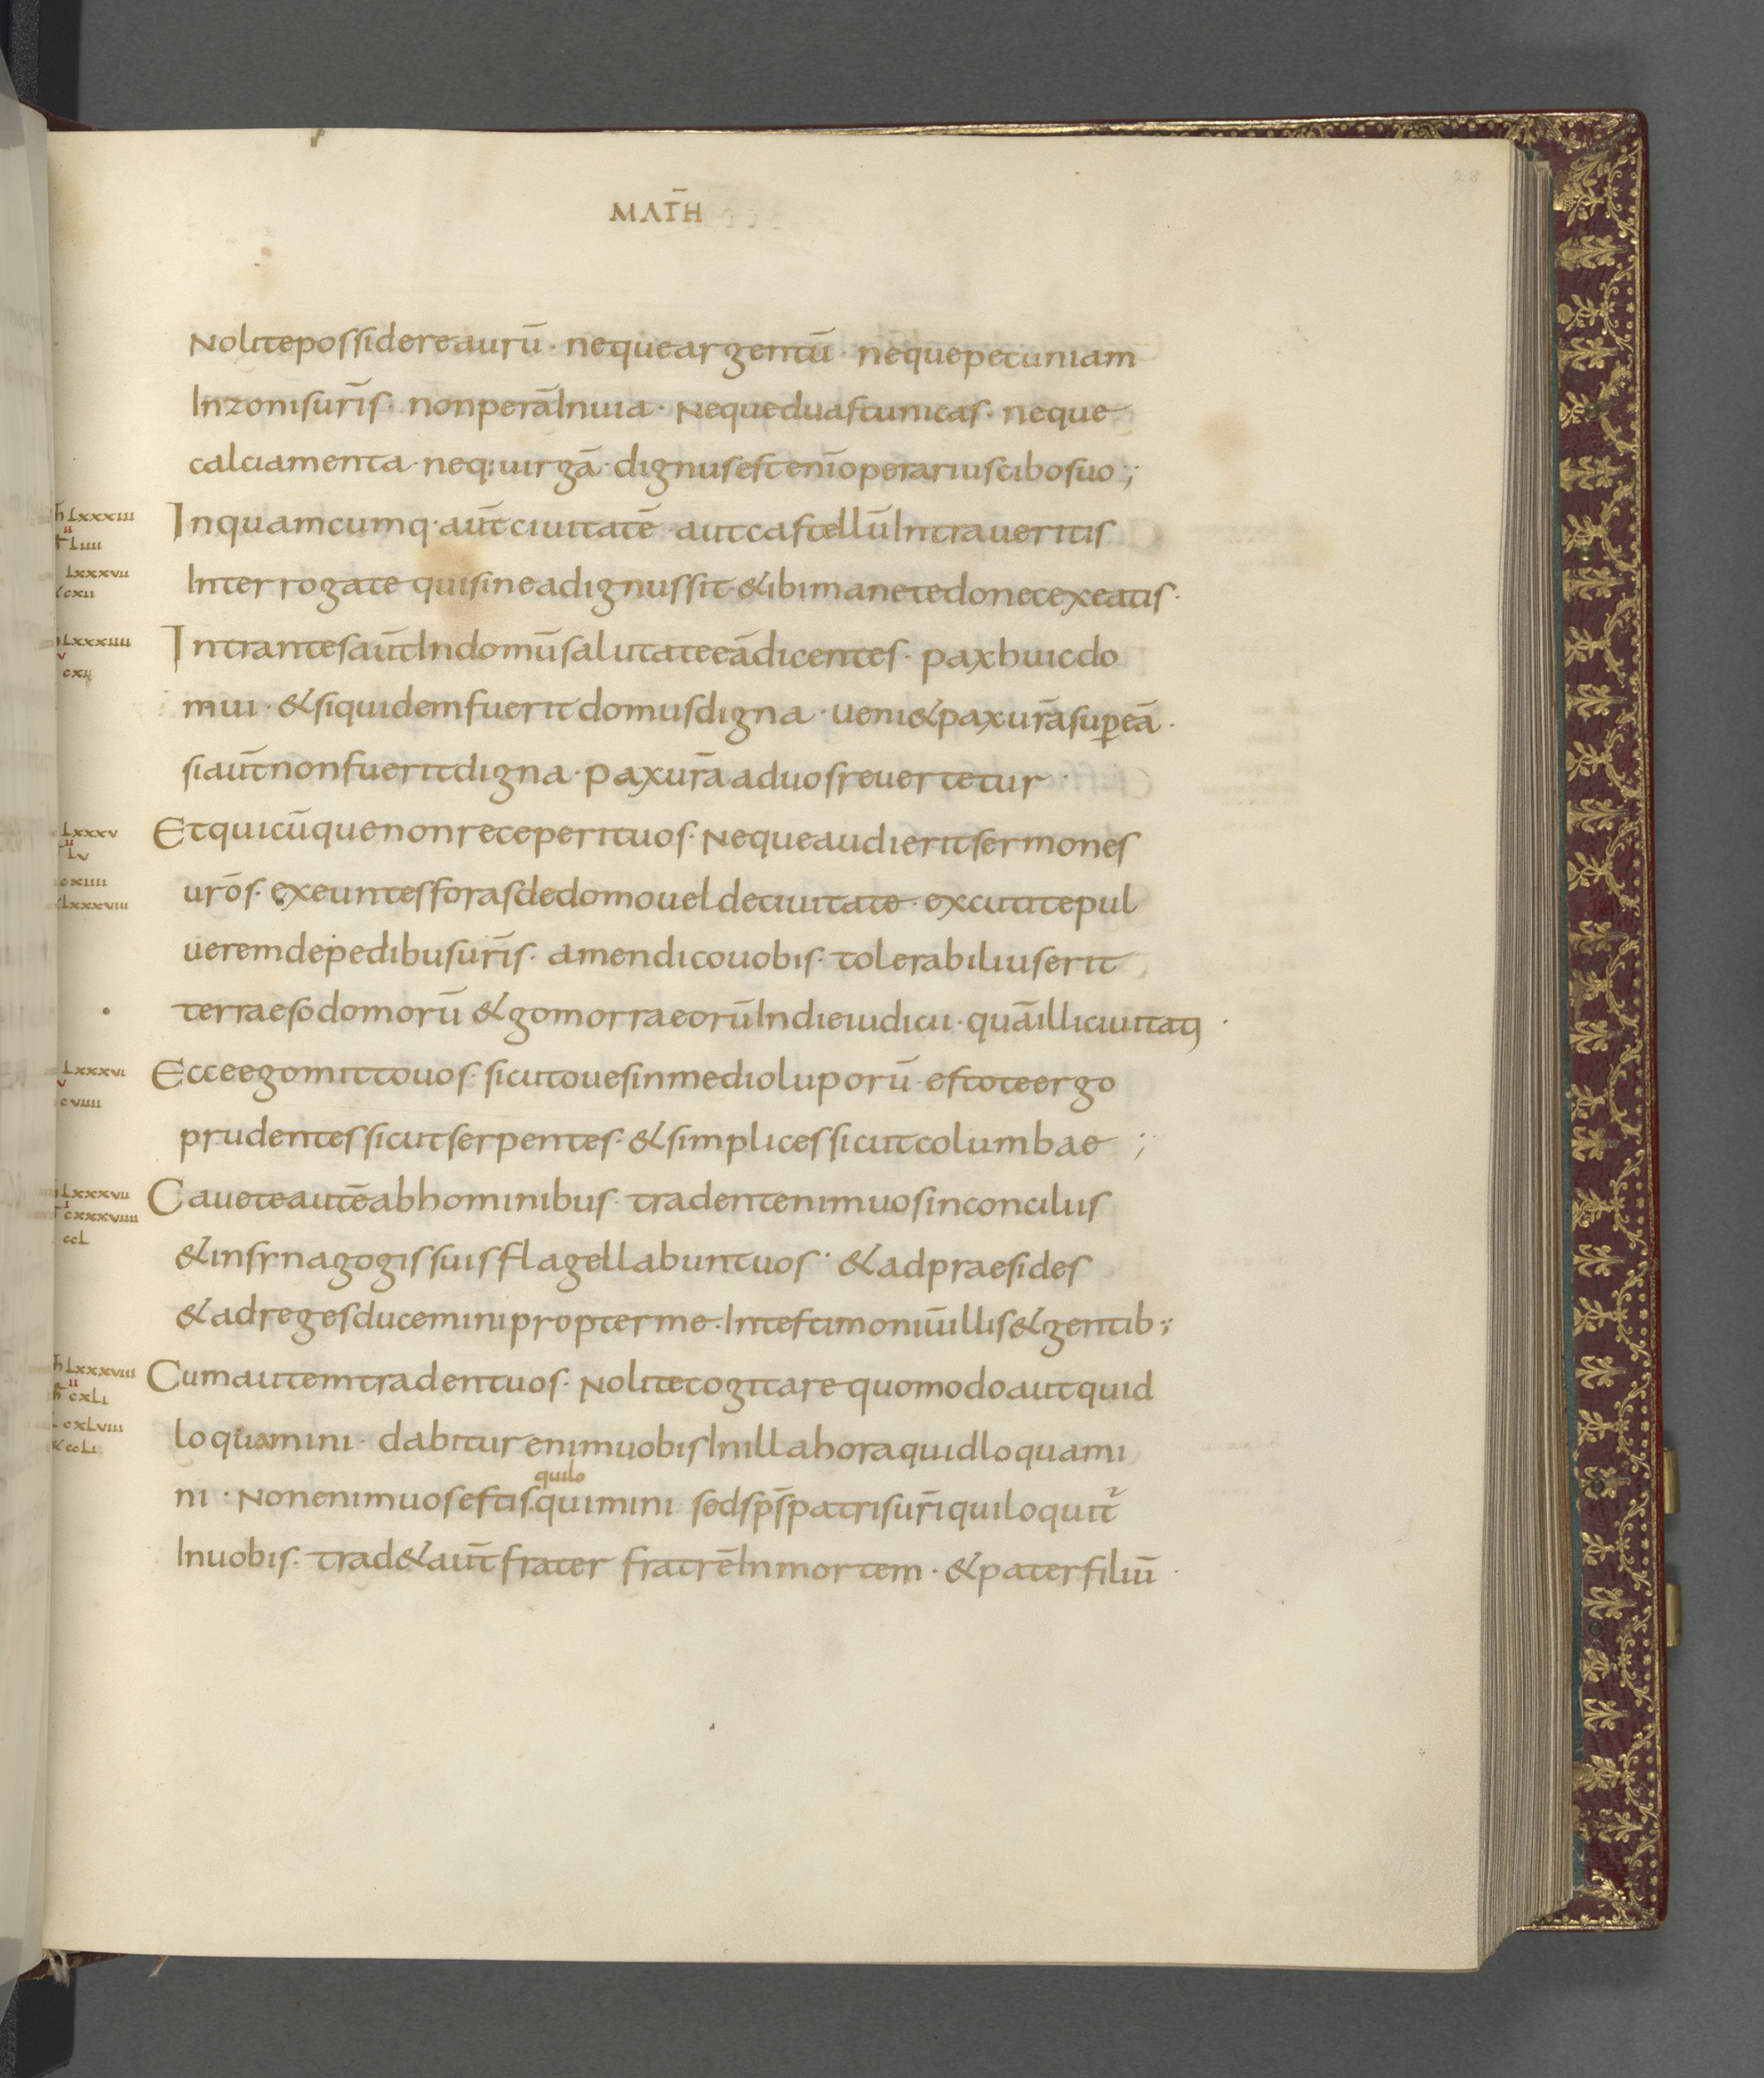 28
MAT̄H
Nolitepossidereaurū · nequeargentū · nequepecuniam
Inzonisur̄is · nonperāInuia · Nequeduastunicas · neque
calciamenta · neq:uirgā · dignusestenīoperariuscibosuo:;
h̄ Lxxxiii
Inquamcumq · aūtciuitatē · autcastellūIntraueritis
ii
Liiii
Lxxxvii
Interrogate quisineadignussit · &ibimanetedonecexeatis ·
cxii
Lxxxiiii
IntrantesaūtIndomūsalutateeādicentes · paxhuicdo
v
cxii
mui · &siquidemfueritdomusdigna · ueni&paxur̄asup̄eā ·
siaūtnonfueritdigna · paxur̄aaduosreuertetur ·
Lxxxv
Etquicūquenonreceperituos · Nequeaudieritsermones
ii
Lv
cxiiii
ur̄os · exeuntesforasdedomouel deciuitate · excutitepul
Lxxxviii
ueremdepedibusur̄is · amendicouobis · tolerabiliuserit
terraesodomorū &gomorraeorūIndieiudicii · quāilliciuitati ·
Lxxxvi
Ecceegomittouos · sicutouesinmedioluporū · estoteergo
v
cviiii
prudentessicutserpentes · &simplicessicutcolumbae ;
Lxxxvii
Caueteautēabhominibus · tradentenimuosinconciliis
i
cxxxviiii
ccL
&insynagogissuisflagellabuntuos · &adpraesides
&adregesduceminipropterme · Intestimoniūillis&gentib:;
h̄ Lxxxviii
Cumautemtradentuos · Nolitecogitarequomodoautquid
ii
cxLi
cxLviii
loquamini · dabiturenimuobisInillahoraquidloquami
ccLi
quilo
ni · Nonenimuosestis.quimini sedsp̄spatrisur̄iquiloquit̄
Inuobis · trad&aūtfrater fratrēInmortem · &paterfiliū ·